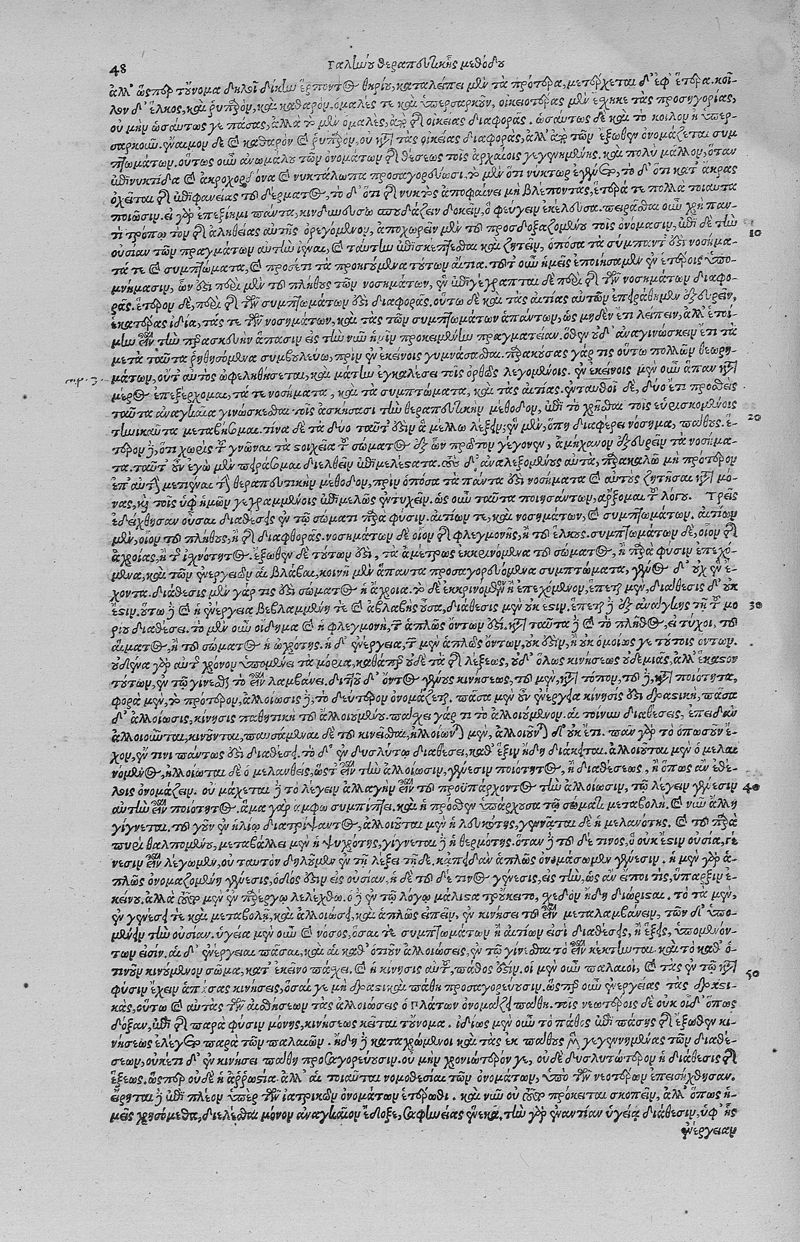 48 Γαληνοῦ θεραπευτικῆς μεθόδου
ἀλλ' ὥσπερ τοὔνομα δηλοῖ δίκην ἕρποντος θηρίου, καταλείπει μὲν τὰ πρότερα, μετέρχεται δ' ἐφ' ἕτερα. κοῖ-
λον δ' ἕλκος, καὶ ῥυπαρὸν, καὶ καθαρὸν, ὁμαλές τε καὶ ὑπερσαρκοῦν, οἰκειοτέρας μὲν ἔσχηκε τὰς προσηγορίας,
οὐ μὴν ὡσαύτως γε πάσας, ἀλλὰ τὸ μὲν ὁμαλὲς, ἀπὸ τῆς οἰκείας διαφορᾶς. ὡσαύτως δὲ καὶ τὸ κοῖλον ἢ ὑπερ-
σαρκοῦν. τὸ δὲ καθαρὸν καὶ ῥυπαρὸν, οὐ κατὰ τὰς οἰκείας διαφορὰς, ἀλλ' ἀπὸ τῶν ἔξωθεν ὀνομάζεται συμ
πτωμάτων. οὕτως οὖν ἀνωμάλου τῶν ὀνομάτων τῆς θέσεως τοῖς ἀρχαίοις γεγενημένης. καὶ πολὺ μᾶλλον, ὅταν
ἐπινυκτίδα καὶ ἀκροχορδόνα καὶ νυκτάλωπα προσαγορεύωσι. τὸ μὲν ὅτι νύκτωρ ἐγένετο, τὸ δ' ὅτι κατ' ἄκρας
ὀχεῖται τῆς ἐπιφανείας τοῦ δέρματος, τὸ δ' ὅτι τῆς νυκτὸς ἀποφαίνει μὴ βλέποντας, ἕτερά τε πολλὰ τοιαῦτα
ποιῶσιν. εἰ γὰρ ἐπεξίοιμι πάντα, κινδυνεύσω σπουδάζειν δοκεῖν, ὃ φεύγειν ἐκέλευσα. πειρᾶσθαι οὖν χρὴ παν-
τὶ τρόπῳ τὸν τῆς ἀληθείας αὐτῆς ὀρεγόμενον, ἀποχωρεῖν μὲν τοῦ προσδοξαζομένου τοῖς ὀνόμασιν, ἐπὶ δὲ τὴν 10
οὐσίαν τῶν πραγμάτων αὐτὴν ἰέναι, καὶ ταύτην ἐπισκέπτεσθαι καὶ ζητεῖν, ὁπόσα τὰ σύμπαντ' ἐστὶ νοσήμα-
τά τε καὶ συμπτώματα, καὶ προσέτι τὰ προηγούμενα τούτων αἴτια. τοῦτ' οὖν ἡμεῖς ἐποιήσαμεν ἐν ἑτέροις ὑπο-
μνήμασιν, ὧν ἐστι περὶ μὲν τοῦ πλήθους τῶν νοσημάτων, ἐν ᾧ ἐπιγέγραπται δὲ περὶ τῆς τῶν νοσημάτων διαφο-
ρᾶς. ἕτερον δὲ, περὶ τῆς τῶν συμπτωμάτων ἐστὶ διαφορᾶς. οὕτω δὲ καὶ τὰς αἰτίας αὐτῶν ἐπειράθημεν ἐξευρεῖν,
ἑκατέρας ἰδίᾳ, τάς τε τῶν νοσημάτων, καὶ τὰς τῶν συμπτωμάτων ἁπάντων, ὡς μηδὲν ἔτι λείπειν, ἀλλ' ἑτοί-
μην εἶναι τὴν παρασκευὴν ἅπασιν εἰς τὴν νῦν ἡμῖν προκειμένην πραγματείαν. ὅθεν οὐδ' ἀναγινώσκειν ἔτι τὰ
μετὰ ταῦτα ῥηθησόμενα συμβουλεύω, πρὶν ἐν ἐκείνοις γυμνάσασθαι. παρακούσας γάρ τις οὕτω πολλῶν θεωρη-
μάτων, οὔτ' αὐτὸς ὠφεληθήσεται, καὶ μάτην ἐγκαλέσει τοῖς ὀρθῶς λεγομένοις. ἐν ἐκείνοις μὲν οὖν ἅπαν κατὰ
μέρος ἐπεξέρχομαι, τά τε νοσήματα, καὶ τὰ συμπτώματα, καὶ τὰς αἰτίας. ἐνταυθοῖ δὲ, δύο ἔτι προσθεὶς
ταῦτα ἀναγκαῖα γινώσκεσθαι τοῖς ἀσκήσασι τὴν θεραπευτικὴν μέθοδον, ἐπὶ τὸ χρῆσθαι τοῖς εὑρισκομένοις 20
τηνικαῦτα μεταβήσομαι. τίνα δὲ τὰ δύο ταῦτ' ἐστὶν ἃ μέλλω λέξειν; ἓν μὲν, ὅπῃ διαφέρει νόσημα, πάθους. ἕ-
τερον δὲ, ὅτι χωρὶς τοῦ γνῶναι τὰ στοιχεῖα τοῦ σώματος ἐξ ὧν πρώτων γέγονεν, ἀμήχανον ἐξευρεῖν τὰ νοσήμα-
τα. ταῦτ' οὖν ἐγὼ μὲν πειράσομαι διελθεῖν ἐπιμελέστατα. σὲ δ' ἀναλεξόμενος αὐτὰ, παρακαλῶ μὴ πρότερον
ἐπ' αὐτὴν μετιέναι τὴν θεραπευτικὴν μέθοδον, πρὶν ὁπόσα τὰ πάντα ἐστὶ νοσήματα καὶ αὐτὸς ζητῆσαι κατὰ μό-
νας, καὶ τοῖς ὑφ' ἡμῶν γεγραμμένοις ἐπιμελῶς ἐντυχεῖν. ὡς οὖν ταῦτα ποιησάντων, ἄρξομαι τοῦ λόγου. Τρεῖς
ἐδείχθησαν οὖσαι διαθέσεις ἐν τῷ σώματι παρὰ φύσιν. αἰτίων τε, καὶ νοσημάτων, καὶ συμπτωμάτων. αἰτίων
μὲν, οἷον τοῦ πλήθους, ἢ τῆς διαφθορᾶς. νοσημάτων δὲ οἷον τῆς φλεγμονῆς, ἢ τοῦ ἕλκους. συμπτωμάτων δὲ, οἷον τῆς
ἀχροίας, ἢ τῆς ἰσχνότητος. ἔξωθεν δὲ τούτων ἐστὶ, τὰ ἀμέτρως ἐκκρινόμενα τοῦ σώματος, ἢ παρὰ φύσιν ἐπεχό-
μενα, καὶ τῶν ἐνεργειῶν αἱ βλάβαι, κοινῇ μὲν ἅπαντα προσαγορευόμενα συμπτώματα, γένος δ' οὐχ ἓν ἔ-
χοντα. διάθεσις μὲν γάρ τίς ἐστι σώματος ἡ ἄχροια. τὸ δὲ ἐκκρινόμενον ἢ ἐπεχόμενον, ἕπεται μὲν, διάθεσις δ' οὐκ
ἔστιν. οὕτω δὲ καὶ ἡ ἐνέργεια βεβλαμμένη τε καὶ ἀβλαβὴς οὖσα, διάθεσις μὲν οὐκ ἔστιν. ἕπεται δὲ ἐξ ἀνάγκης τῇ τοῦ μο 30
ρίου διαθέσει. τὸ μὲν οὖν οἴδημα καὶ ἡ φλεγμονὴ, τῶν ἁπλῶς ὄντων ἐστί. κατὰ ταῦτα δὲ καὶ τὸ πλῆθος, εἰ τύχοι, τοῦ
αἵματος, ἢ τοῦ σώματος ἡ ὠχρότης. ἡ δ' ἐνέργεια, τῶν μὲν ἁπλῶς ὄντων, οὐκ ἔστιν, ἢ οὐχ ὁμοίως γε τούτοις ὄντων.
οὐδένα γὰρ αὐτῆς χρόνον ὑπομένει τὰ μόρια, καθάπερ οὐδὲ τὰ τῆς λέξεως, οὐδ' ὅλως κινήσεως οὐδεμιᾶς, ἀλλ' ἕκαστον
τούτων, ἐν τῷ γίνεσθαι τὸ εἶναι λαμβάνει. διττοῦ δ' ὄντος γένους κινήσεως, τοῦ μὲν, κατὰ τόπον, τοῦ δὲ, κατὰ ποιότητα,
φορὰ μὲν, τὸ πρότερον, ἀλλοίωσις δὲ, τὸ δεύτερον ὀνομάζεται. πᾶσα μὲν οὖν ἐνέργεια κίνησίς ἐστι δραστικὴ, πᾶσα
δ' ἀλλοίωσις, κίνησις παθητικὴ τοῦ ἀλλοιουμένου. πάσχει γάρ τι τὸ ἀλλοιούμενον. αἱ τοίνυν διαθέσεις, ἐπειδὰν
ἀλλοιῶνται, κινοῦνται, παυσάμεναι δὲ τοῦ κινεῖσθαι, ἠλλοίωνται μὲν, ἀλλοιοῦνται δ' οὐκ ἔτι. πᾶν γὰρ τὸ ὁπωσοῦν ἔ-
χον, ἔν τινι πάντως ἐστὶ διαθέσει. τὸ δ' ἐν δυσλύτῳ διαθέσει, καθ' ἕξιν ἤδη διάκειται. ἀλλοιοῦται μὲν ὁ μελαι
νόμενος, ἠλλοίωται δὲ ὁ μελανθείς. ὥστ' εἶναι τὴν ἀλλοίωσιν, γένεσιν ποιότητος, ἢ διαθέσεως, ἢ ὅπως ἂν ἐθέ-
λοις ὀνομάζειν. οὐ μάχεται δὲ τὸ λέγειν ἀλλαγὴν εἶναι τοῦ προϋπάρχοντος τὴν ἀλλοίωσιν, τῷ λέγειν γένεσιν 40
αὐτὴν εἶναι ποιότητος, ἅμα γὰρ ἄμφω συμπίπτει. καὶ ἡ πρόσθεν ὑπάρχουσα τῷ σώματι μεταβολὴ, καὶ νῦν ἄλλη
γίγνεται. τοῦ γοῦν ἐν ἡλίῳ διατρίψαντος, ἀλλοιοῦται μὲν ἡ λευκότης, γεννᾶται δὲ ἡ μελανότης. καὶ τοῦ παρὰ
πυρὶ θαλπομένου, μεταβάλλει μὲν ἡ ψυχρότης, γίγνεται δὲ ἡ θερμότης. ὅταν δὲ τοῦδέ τινος, ὃ οὐκ ἔστιν οὐσία, γέ
νεσιν εἶναι λέγωμεν, οὐ ταὐτὸν δηλοῦμεν ἐν τῇ λέξει τῇδε, κἀπειδὰν ἁπλῶς ὀνομάσωμεν γένεσιν. ἡ μὲν γὰρ ἁ-
πλῶς ὀνομαζομένη γένεσις, ὁδός ἐστιν εἰς οὐσίαν. ἡ δὲ τοῦδέ τινος γένεσις, εἰς τὴν, ὡς ἂν εἴποι τις, ὕπαρξιν ἐ-
κείνου. ἀλλὰ ταῦτα μὲν ἐν παρέργῳ λελέχθω. ὃ δὲ ἐν τῷ λόγῳ μάλιστα προὔκειτο, σχεδὸν ἤδη διώρισται. τὸ τὰ μὲν,
ἐν γενέσει τε καὶ μεταβολῇ, καὶ ἀλλοιώσει, καὶ ἁπλῶς εἰπεῖν, ἐν κινήσει τοῦ εἶναι μεταλαμβάνειν, τῶν δ' ὑπο-
μένειν τὴν οὐσίαν. ὑγίεια μὲν οὖν καὶ νόσος, ὅσαι τε συμπτωμάτων ἢ αἰτίων εἰσὶ διαθέσεις, ἢ ἕξεις, ὑπομενόν-
των εἰσίν. αἱ δ' ἐνέργειαι πᾶσαι, καὶ αἱ καθ' ὁτιοῦν ἀλλοιώσεις, ἐν τῷ γίνεσθαι τὸ εἶναι κέκτηνται. καὶ τὸ καθ' ὁ-
τιοῦν κινούμενον σῶμα, κατ' ἐκεῖνο πάσχει. καὶ ἡ κίνησις αὐτοῦ, πάθος ἐστίν. οἱ μὲν οὖν παλαιοὶ, καὶ τὰς ἐν τῷ κατὰ 50
φύσιν ἔχειν ἁπάσας κινήσεις, ὅσαι γε μὴ δραστικαὶ πάθη προσαγορεύουσιν. ὥσπερ οὖν ἐνεργείας τὰς δραστι-
κὰς, οὕτω καὶ αὐτὰς τῶν αἰσθήσεων τὰς ἀλλοιώσεις ὁ Πλάτων ὀνομάζει πάθη. τοῖς νεωτέροις δὲ οὐκ οἶδ' ὅπως
δόξαν, ἐπὶ τῆς παρὰ φύσιν μόνης, κινήσεως κεῖται τοὔνομα. ἰδίως μὲν οὖν τὸ πάθος ἐπὶ πάσης τῆς ἔξωθεν κι-
νήσεως ἐλέγετο παρὰ τῶν παλαιῶν. ἤδη δὲ καταχρώμενοι καὶ τὰς ἐκ πάθους γεγενημένας τῶν διαθέ-
σεων, οὐκέτι δ' ἐν κινήσει πάθη προσαγορεύουσιν. οὐ μὴν χρονιώτερόν γε, οὐδὲ δυσλυτώτερον ἡ διάθεσις τῆς
ἕξεως, ὥσπερ οὐδὲ ἡ ἀρρωστία. ἀλλ' αἱ τοιαῦται νομοθεσίαι τῶν ὀνομάτων, ὑπὸ τῶν νεοτέρων ἐπεισήχθησαν.
εἴρηται δὲ ἐπὶ πλέον ὑπὲρ τῶν ἰατρικῶν ὀνομάτων ἑτέρωθι. καὶ νῦν οὐ ταῦτα πρόκειται σκοπεῖν, ἀλλ' ὅπως ἡ-
μεῖς χρησόμεθα, διελέσθαι μόνον ἀναγκαῖον ἔδοξε, σαφηνείας ἕνεκα. τὴν γὰρ ἐναντίαν ὑγιείᾳ διάθεσιν, ὑφ' ἧς
ἐνέργειαν